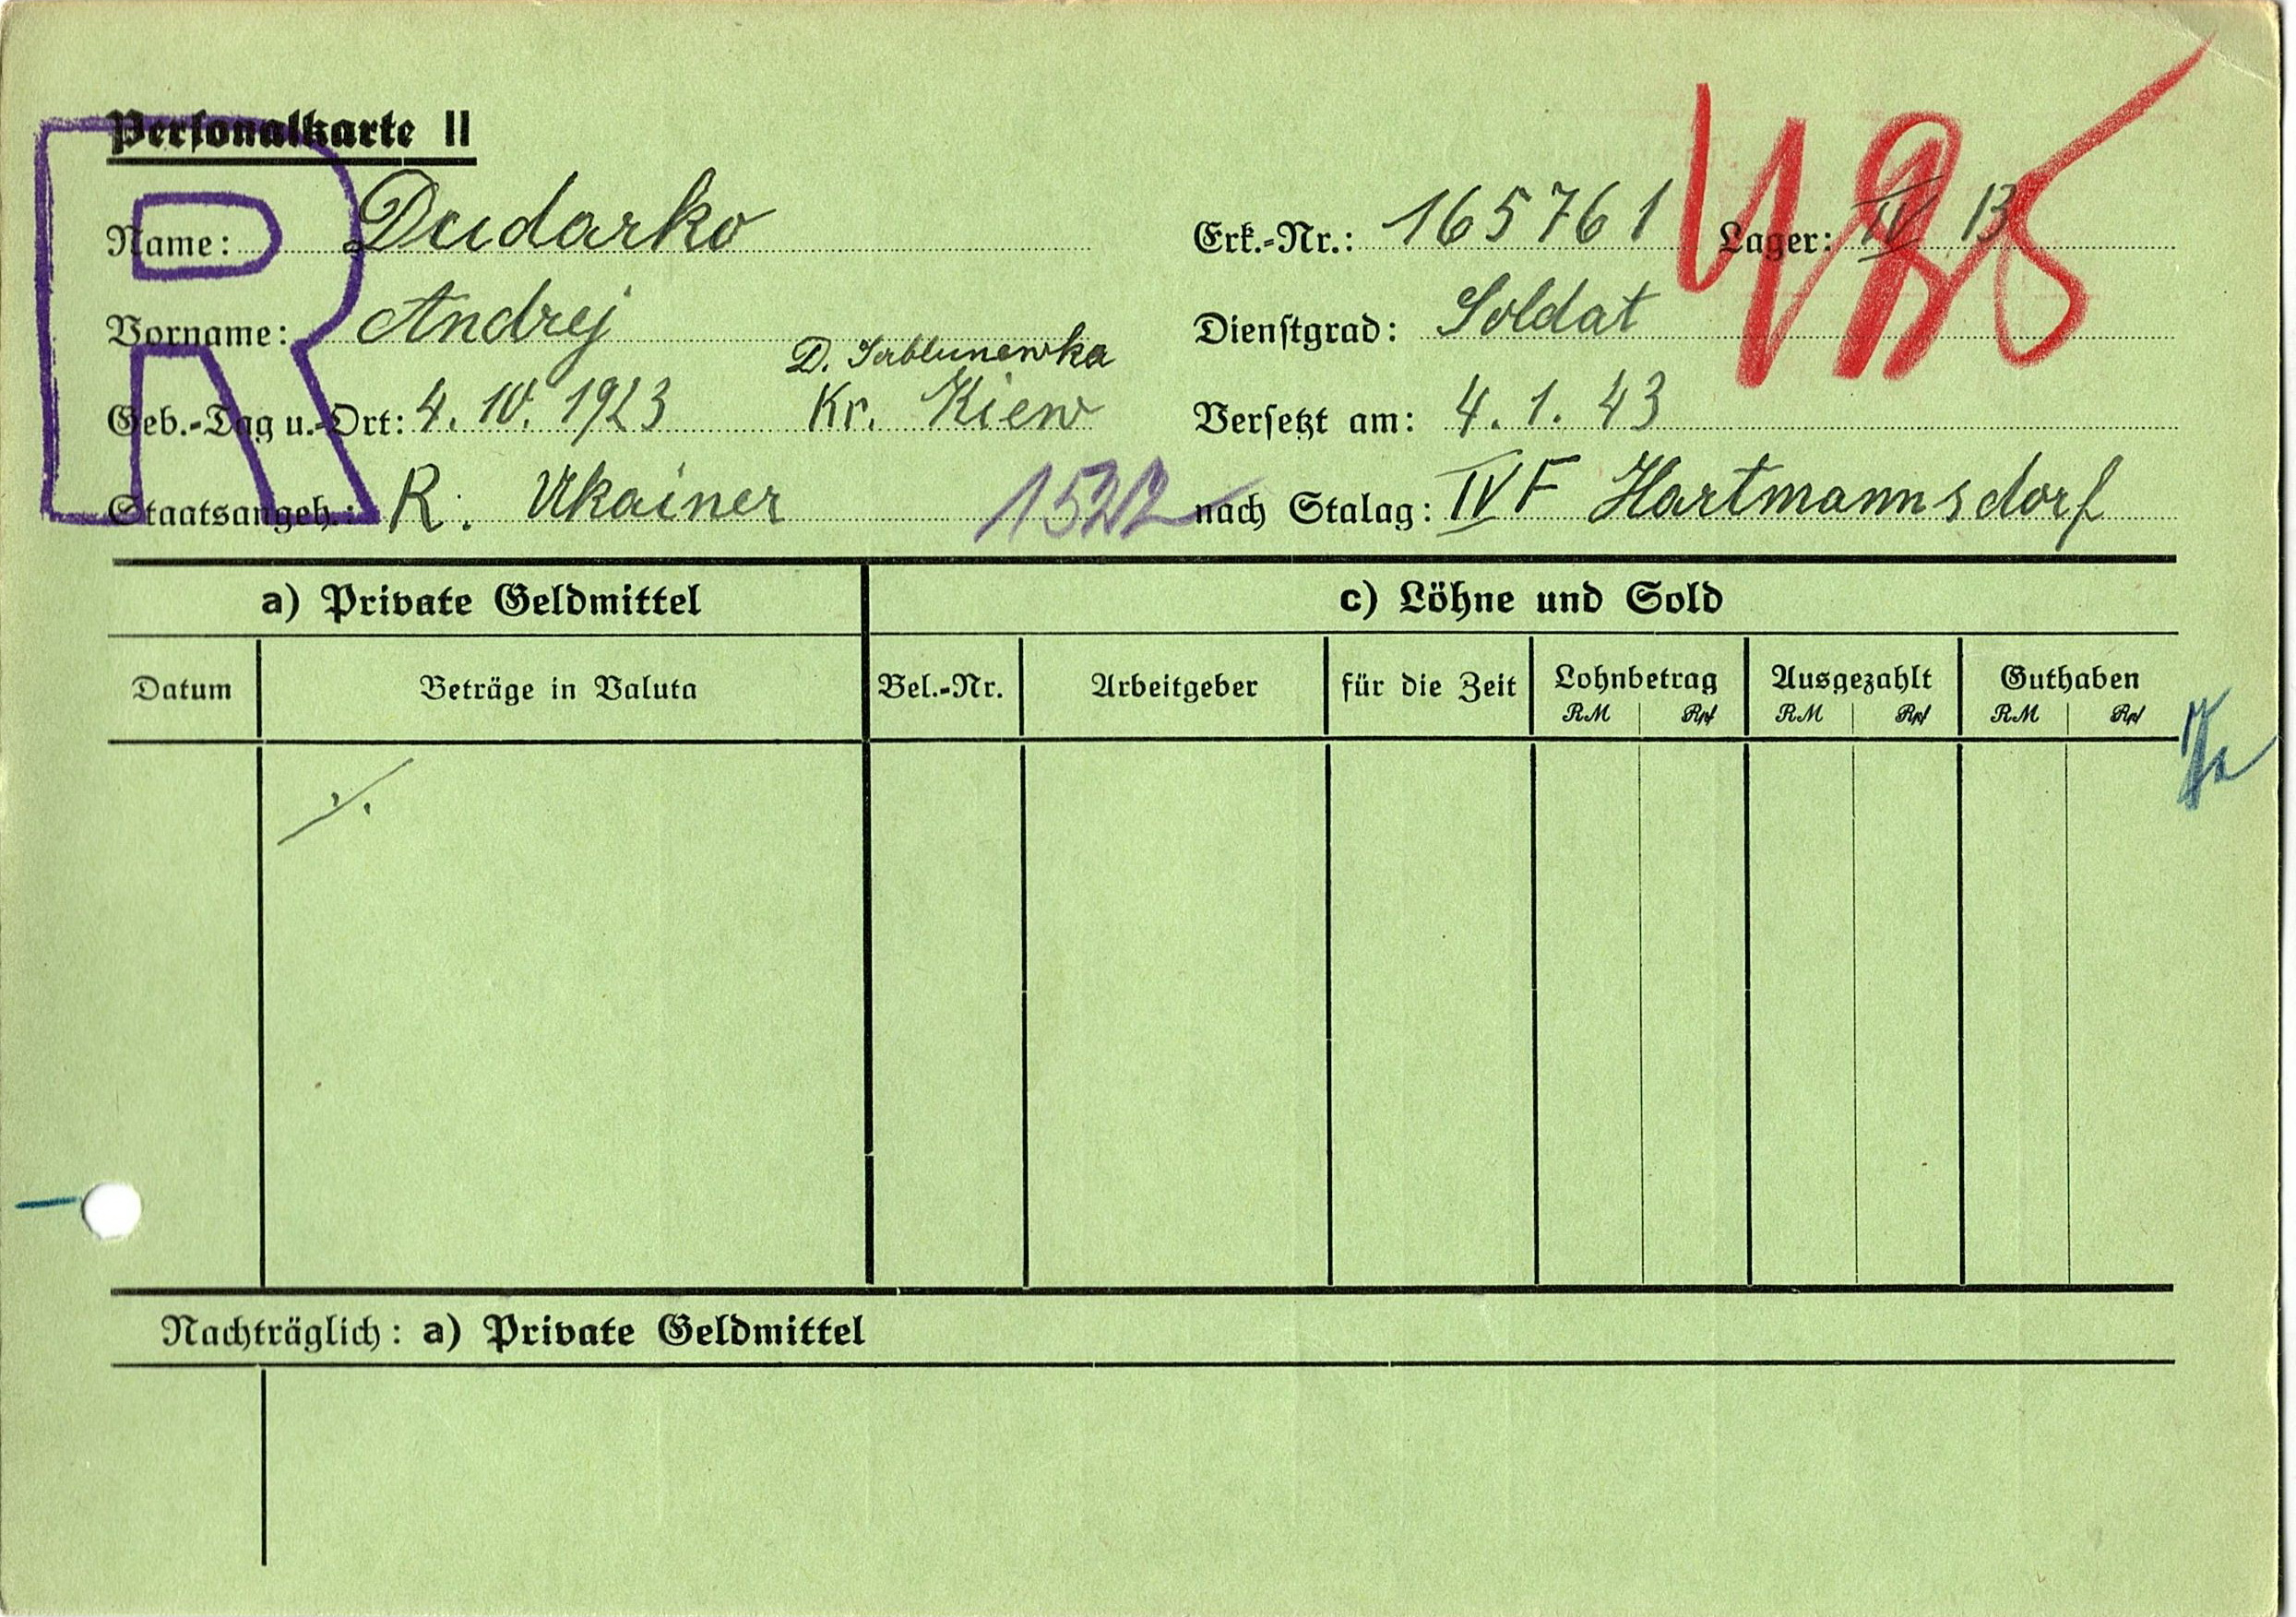 Personalkarte II
R
Name: Dudarko
Erk.-Nr.: 165761 Lager: IV B
485
Vorname: Andrej
Dienstgrad: Soldat
D. Jablunewka
Geb.-Tag u.-Ort: 4. 10. 1923 Kr. Kiew
Versetzt am: 4. 1. 43
Staatsangeh.: R. Ukainer
nach Stalag: IV F Hartmannsdorf
a) Private Geldmittel
c) Löhne und Sold
Datum Beträge in Valuta Bel.-Nr. Arbeitgeber für die Zeit Lohnbetrag Ausgezahlt Guthaben
RM Rpf RM Rpf RM Rpf
Nachträglich: a) Private Geldmittel